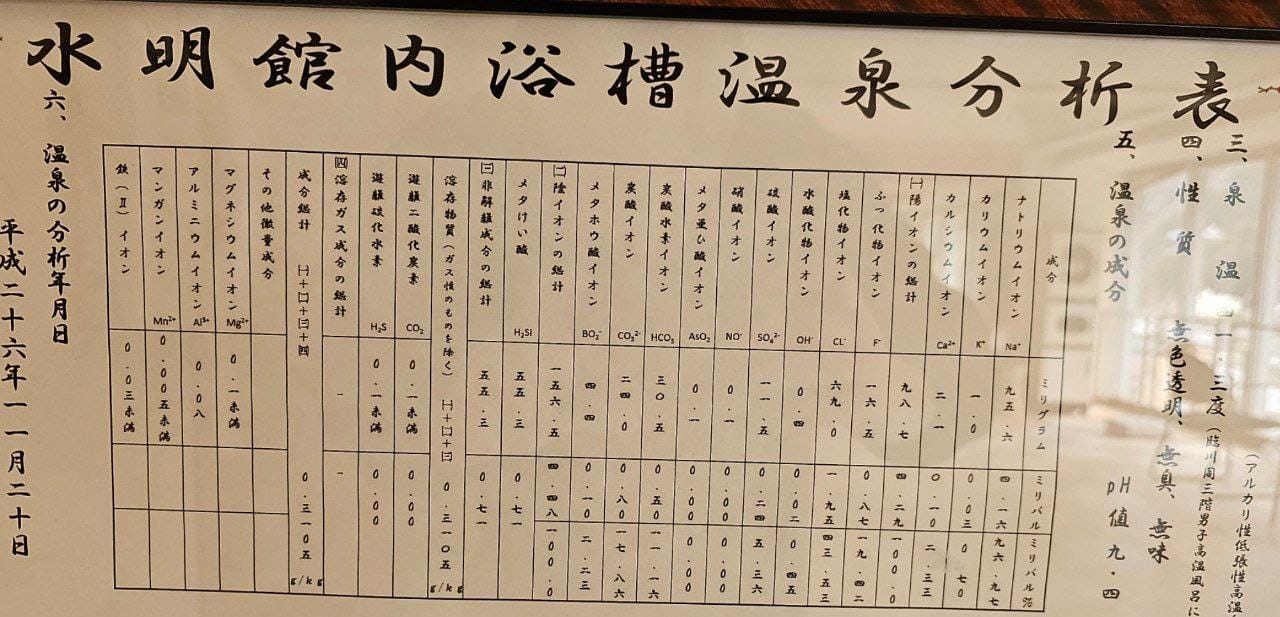 水明館内浴槽温泉分析表
(アルカリ性低張性高温
三、泉 温 四一・三度(臨川閣三階男子高温風呂に
四、性 質 無色透明、無臭、無味
pH値 九・四
五、温泉の成分
成分 ミリグラム ミリバル ミリバル%
ナトリウムイオン Na⁺ 九五・六 四・一六 九六・九七
カリウムイオン K⁺ 一・０ ０・０三 ０・七０
カルシウムイオン Ca²⁺ 二・一 ０・一０ 二・三三
㈠陽イオンの総計 九八・七 四・二九 一００・０
ふっ化物イオン F⁻ 一六・五 ０・八七 一九・四二
塩化物イオン CL⁻ 六九・０ 一・九五 四三・五三
水酸化物イオン OH⁻ ０・四 ０・０二 ０・四五
硫酸イオン SO₄²⁻ 一一・五 ０・二四 五・三六
硝酸イオン NO⁻ ０・一 ０・００ ０・００
メタ亜ひ酸イオン AsO₂ ０・一 ０・００ ０・００
炭酸水素イオン HCO₃ 三０・五 ０・五０ 一一・一六
炭酸イオン CO₃²⁻ 二四・０ ０・八０ 一七・八六
メタホウ酸イオン BO₂⁻ 四・四 ０・一０ 二・二三
㈡陰イオンの総計 一五六・五 四・四八 一００・０
メタけい酸 H₂Si 五五・三 ０・七一
㈢非解離成分の総計 五五・三 ０・七一
溶存物質(ガス性のものを除く) ㈠+㈡+㈢ ０・三一０五 g/kg
遊離二酸化炭素 CO₂ ０・一未満 ０・００
遊離硫化水素 H₂S ０・一未満 ０・００
㈣溶存ガス成分の総計 - -
成分総計 ㈠+㈡+㈢+㈣ ０・三一０五 g/kg
その他微量成分
マグネシウムイオン Mg²⁺ ０・一未満
アルミニウムイオン Al³⁺ ０・０八
マンガンイオン Mn²⁺ ０・００五未満
鉄(Ⅱ)イオン ０・０三未満
六、温泉の分析年月日
平成二十六年一一月二十日